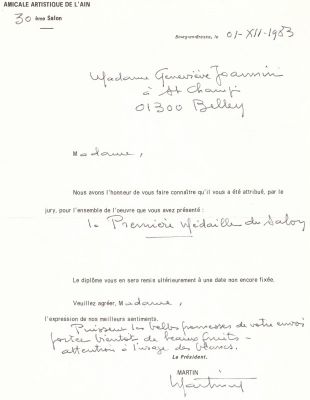 AMICALE ARTISTIQUE DE L'AIN
30 ème Salon
Bourg-en-Bresse, le 01-XII-1983
Madame Geneviève Joannin
à St Champ
01300 Belley
Madame,
Nous avons l'honneur de vous faire connaître qu'il vous a été attribué, par le
jury, pour l'ensemble de l'oeuvre que vous avez présenté :
la Première Médaille du Salon
Le diplôme vous en sera remis ultérieurement à une date non encore fixée.
Veuillez agréer, Madame,
l'expression de nos meilleurs sentiments.
Puissent les belles promesses de votre envoi
porter bientôt de beaux fruits -
attention à l'usage des blancs.
Le Président.
MARTIN
Martin